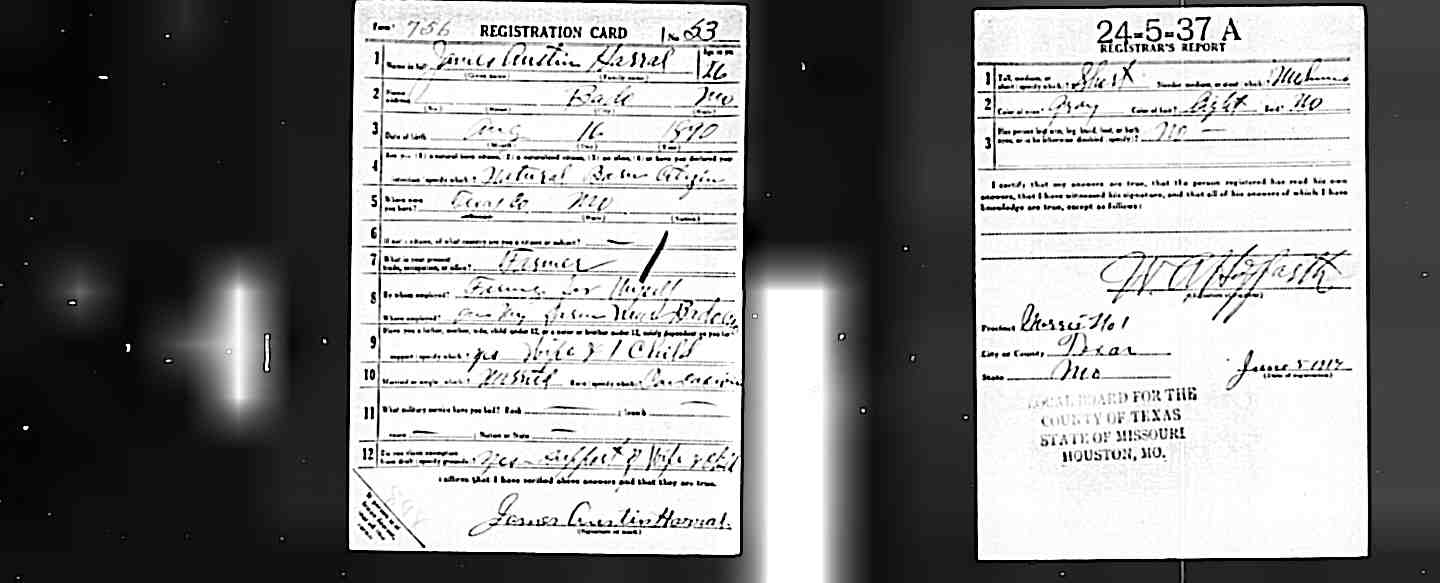 Form 1 756 REGISTRATION CARD No. 53
1 Name in full James Austin Harral Age in yrs. 26
(Given name) (Family name)
2 Home address Bado Mo
(No.) (Street) (City) (State)
3 Date of birth Aug 16 1890
(Month) (Day) (Year)
4 Are you (1) a natural born citizen, (2) a naturalized citizen, (3) an alien, (4) or have you declared your
intention (specify which)? Natural Born Citizen
5 Where were you born? Texas Co Mo
(State) (Nation)
6 If not a citizen, of what country are you a citizen or subject?
7 What is your present trade, occupation, or office? Farmer
8 By whom employed? Farming for Myself
Where employed? on My farm Near Bado
9 Have you a father, mother, wife, child under 12, or a sister or brother under 12, solely dependent on you for
support (specify which)? yes Wife & 1 Child
10 Married or single (which)? Married Race (specify which)? Caucasian
11 What military service have you had? Rank ; branch
years ; Nation or State
12 Do you claim exemption from draft (specify grounds)? yes support of Wife & Child
I affirm that I have verified above answers and that they are true.
James Austin Harral
(Signature or mark)
24-5-37 A
REGISTRAR'S REPORT
1 Tall, medium, or short (specify which)? Short Slender, medium, or stout (which)? Medium
2 Color of eyes? Gray Color of hair? Light Bald? No
3 Has person lost arm, leg, hand, foot, or both eyes, or is he otherwise disabled (specify)? No
I certify that my answers are true, that the person registered has read his own
answers, that I have witnessed his signature, and that all of his answers of which I have
knowledge are true, except as follows:
(Signature of registrar)
Precinct Morris No 1
City or County Texas
State Mo June 5 1917
(Date of registration)
LOCAL BOARD FOR THE
COUNTY OF TEXAS
STATE OF MISSOURI
HOUSTON, MO.